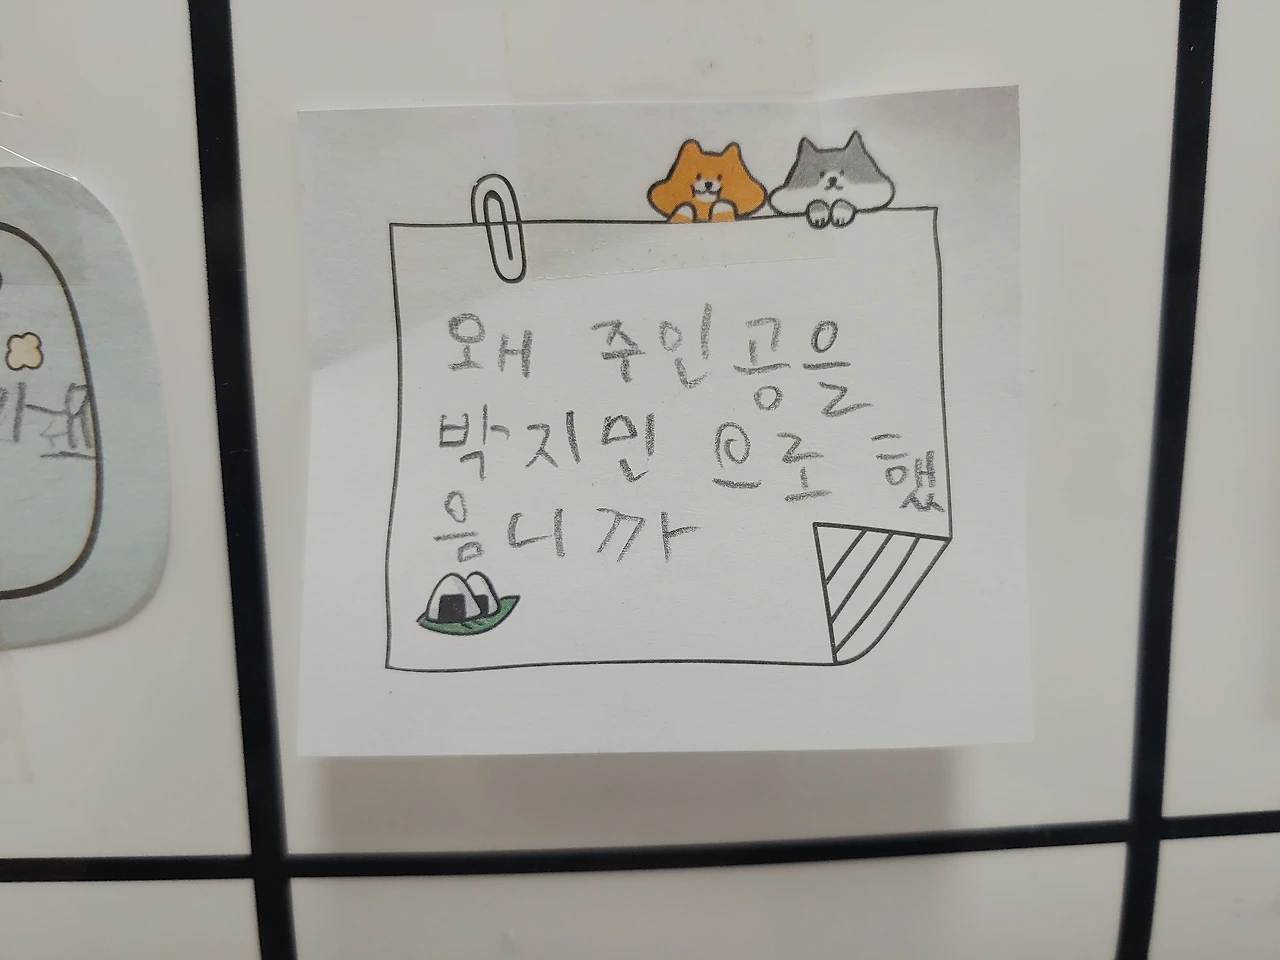 왜 주인공을
박지민 으로 했
음니까